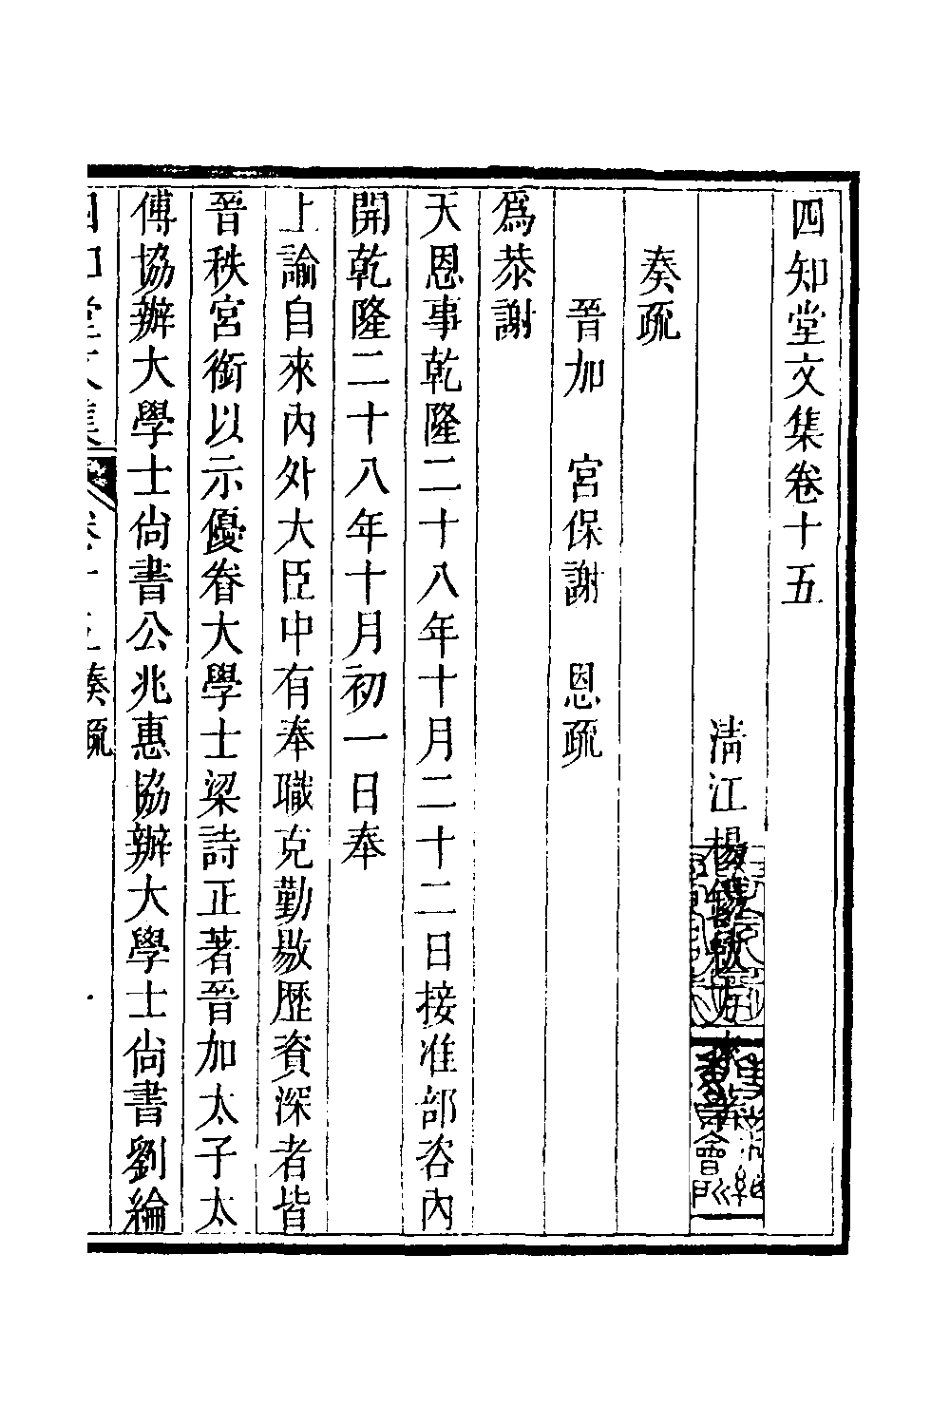 四知堂文集卷十五
清江楊錫紱方來著
奏疏
晉加　宮保謝　恩疏
爲恭謝
天恩事乾隆二十八年十月二十二日接准部咨內
開乾隆二十八年十月初一日奉
上諭自來內外大臣中有奉職克勤敭歷資深者皆
晉秩宮銜以示優眷大學士梁詩正著晉加太子太
傅協辦大學士尙書公兆惠協辦大學士尙書劉綸
四知堂文集 卷十五 奏疏